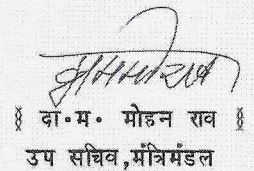 § दा·म· मोहन राव §
उप सचिव,मंत्रिमंडल